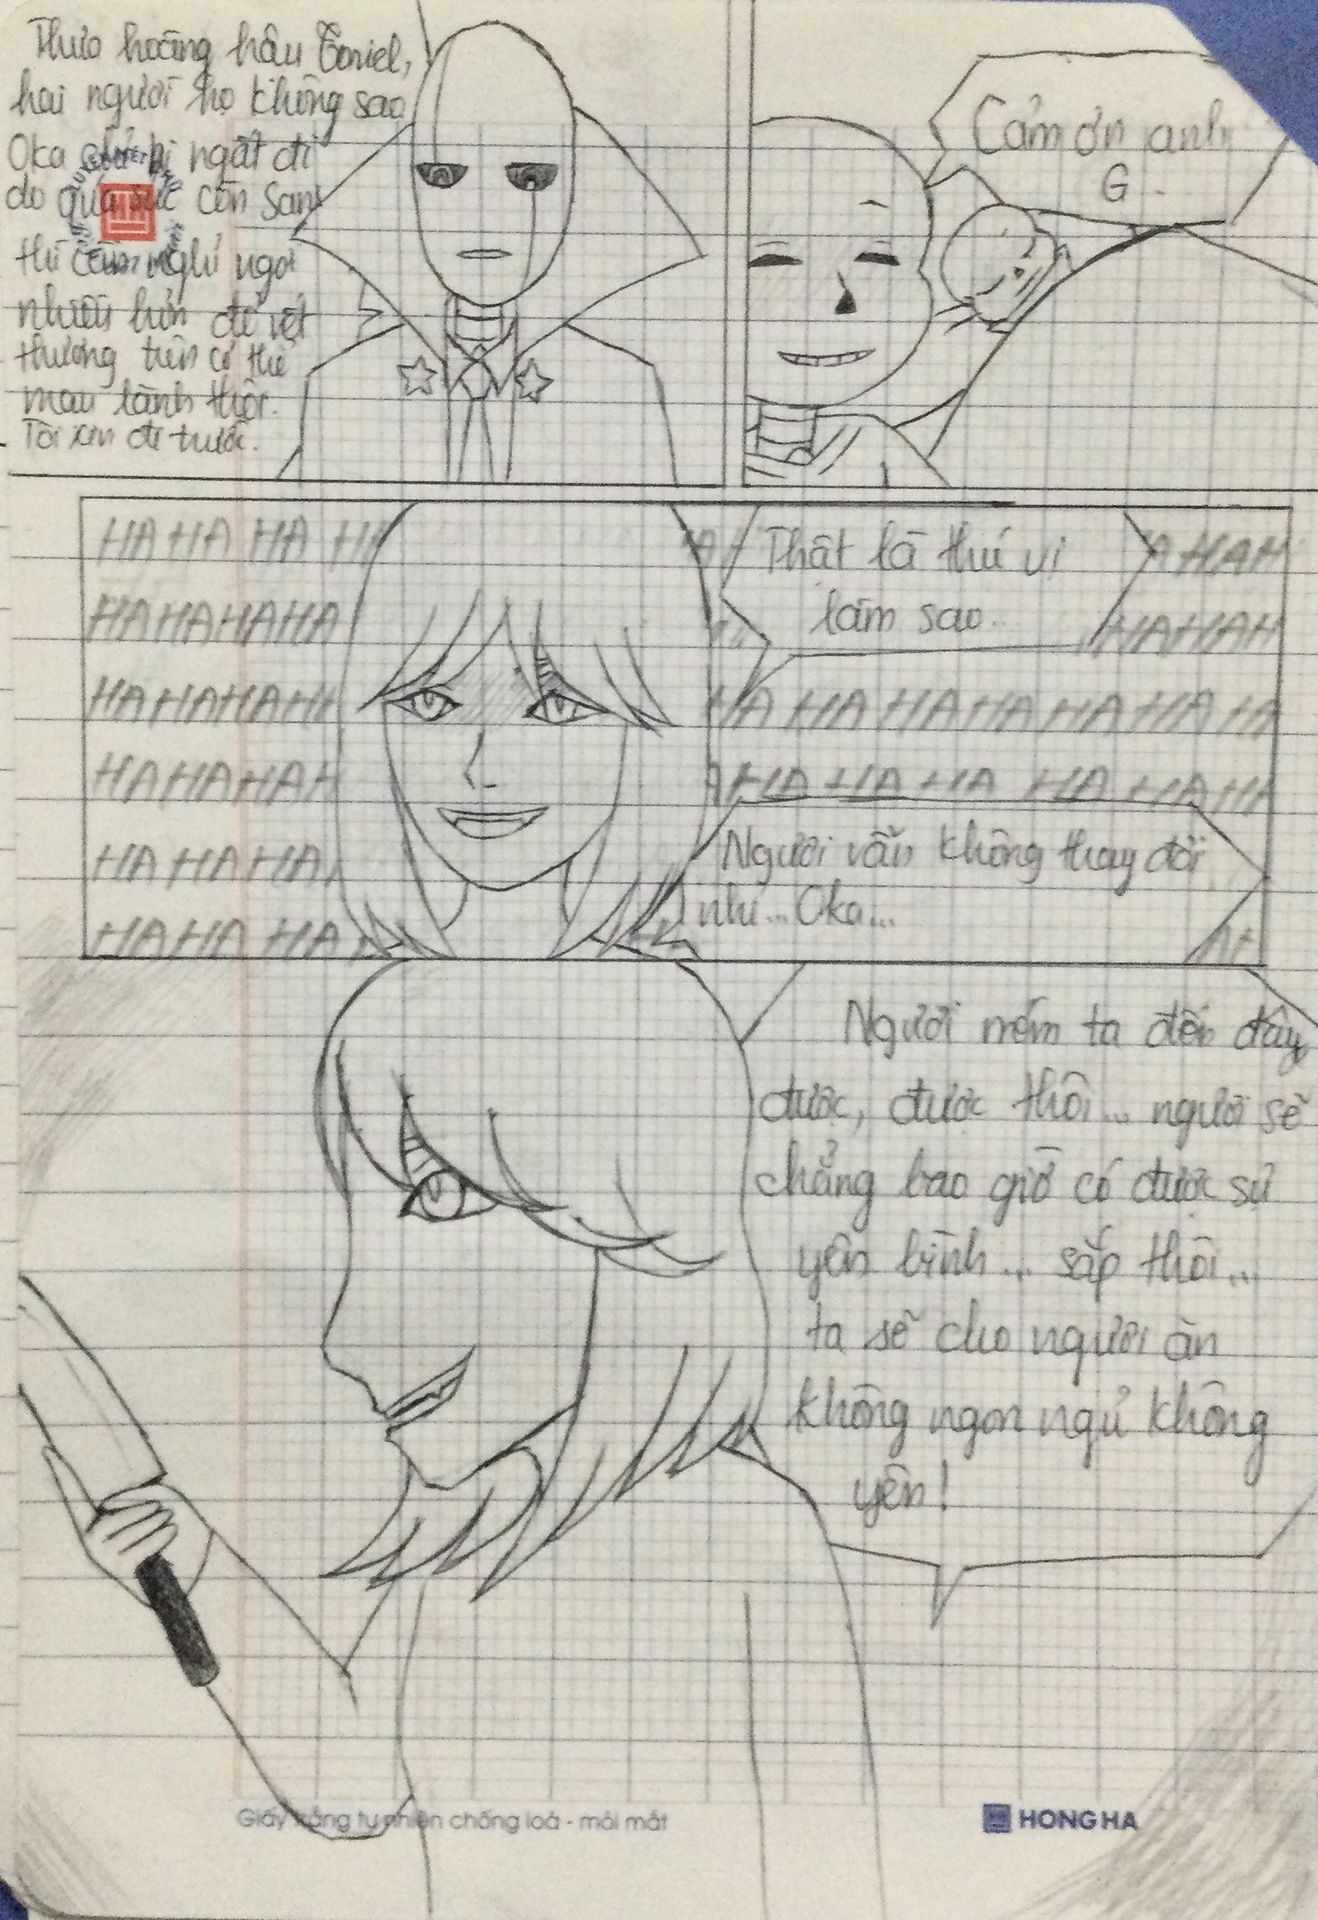 Thưa hoàng hậu Toriel,
hai người họ không sao
Oka chỉ bị ngất đi
do quá sức còn Sans
thì cần nghỉ ngơi
nhiều hơn để vết
thương trên cơ thể
mau lành thôi.
Tôi xin đi trước.
Cảm ơn anh
G.
HA HA HA HA
Thật là thú vị
làm sao.
A HAH
HAHAHAHA
HAHAH
HAHAHAHA
HA HA HA HA HA HA HA
HAHAHAH
HA HA HA HA HAHA
HA HA HA
Ngươi vẫn không thay đổi
nhỉ... Oka...
HAHA HA
Ngươi ném ta đến đây
được, được thôi... ngươi sẽ
chẳng bao giờ có được sự
yên bình... sắp thôi...
ta sẽ cho ngươi ăn
không ngon ngủ không
yên!
Giấy trắng tự nhiên chống loá - mỏi mắt
HONG HA